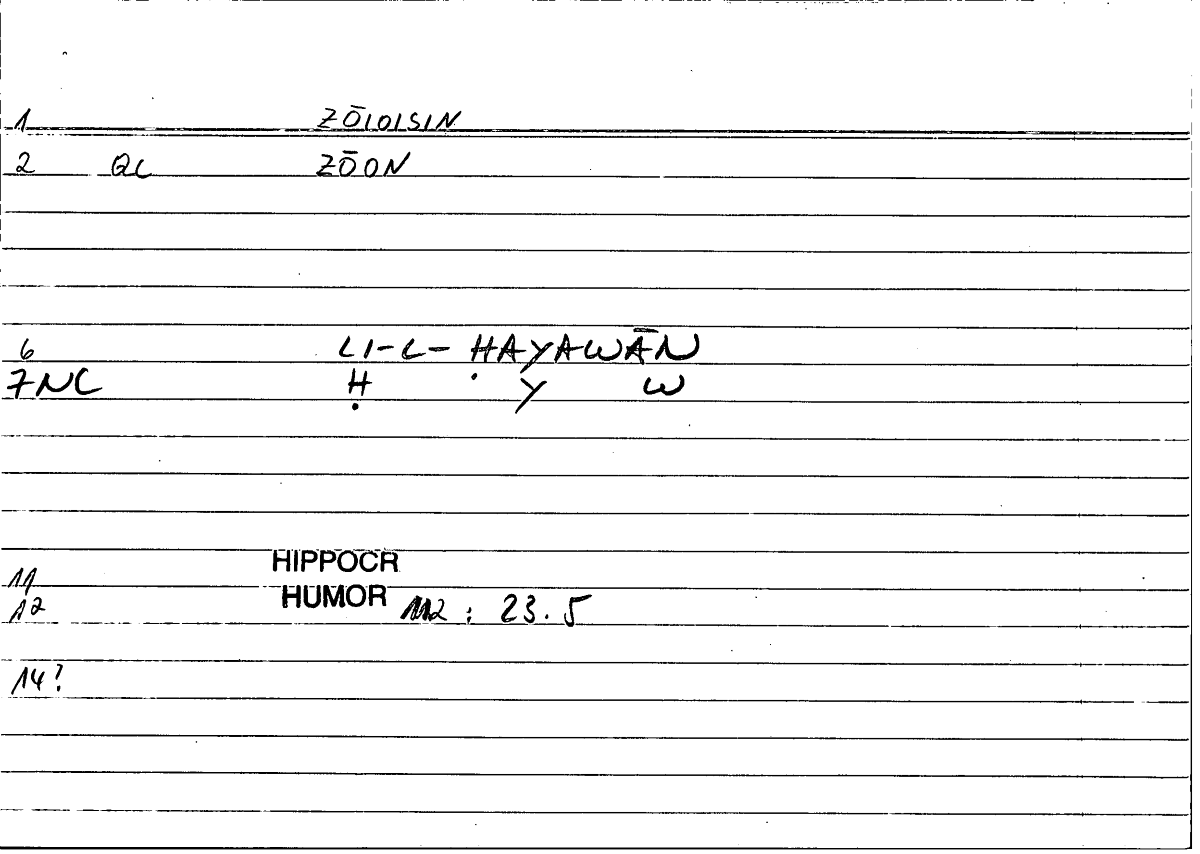 1 ZŌIOISIN
2 QC ZŌON
6 LI-L-ḤAYAWĀN
7NC Ḥ Y W
11 HIPPOCR
12 HUMOR 112 : 23.5
14?